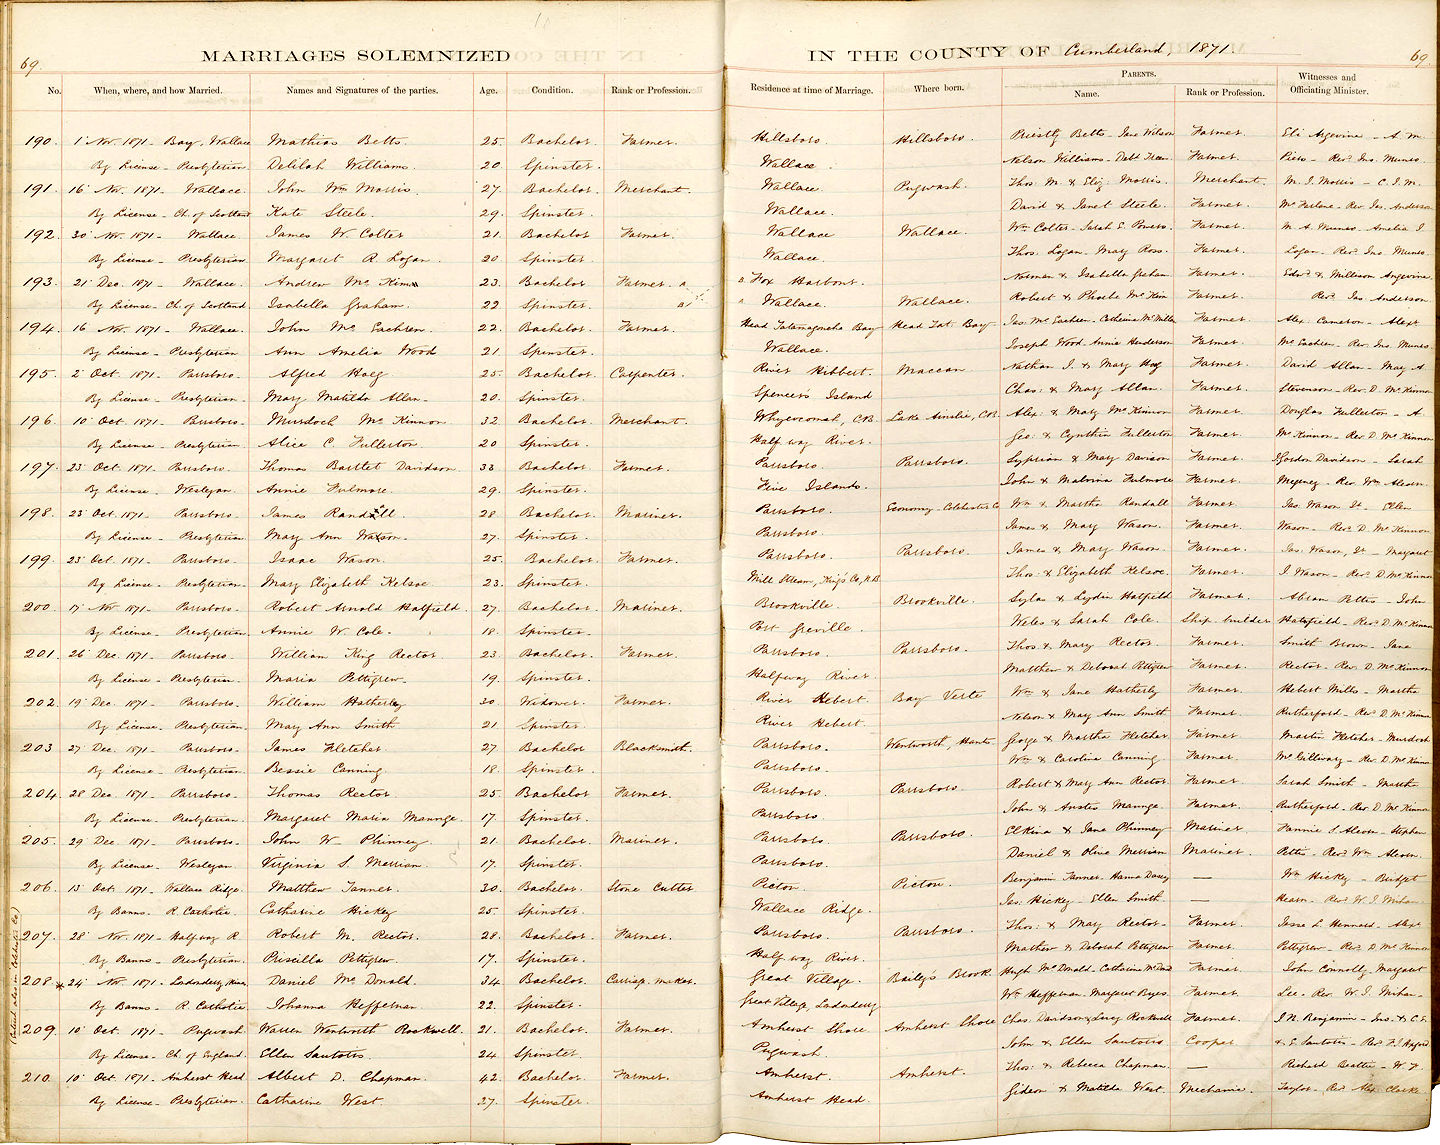 MARRIAGES SOLEMNIZED IN THE COUNTY OF Cumberland, 1871.
69. 69.
No. When, where, and how Married. Names and Signatures of the parties. Age. Condition. Rank or Profession. Residence at time of Marriage. Where born. PARENTS. Name. Rank or Profession. Witnesses and Officiating Minister.
190. 1 Nov. 1871 - Bay, Wallace Mathias Betts 25. Bachelor Farmer. Hillsboro Hillsboro. Priestly Betts - Jane Wilson Farmer. Eli Angevine - A. M.
By License - Presbyterian Delilah Williams 20 Spinster. Wallace. Nelson Williams - Debt Farmer. Piers - Revd. Jas. Munro.
191. 16 Nov. 1871. Wallace. John Wm Morris. 27. Bachelor. Merchant. Wallace. Pugwash. Thos. M. & Eliz: Morris. Merchant. M. J. Morris - C. J. M.
By License - Ch. of Scotland Kate Steele. 29. Spinster. Wallace. David & Janet Steele. Farmer. McFarlane - Rev. Jas. Anderson
192. 30 Nov. 1871 - Wallace. James W. Colter 21. Bachelor Farmer. Wallace Wallace. Wm Colter - Sarah E. Powers. Farmer. M. A. Munro - Amelia J.
By License - Presbyterian. Margaret R. Logan. 20 Spinster. Wallace. Thos. Logan - Mary Ross. Farmer. Logan - Revd. Jas. Munro.
193. 21 Dec. 1871 - Wallace. Andrew McKim 23. Bachelor Farmer. Fox Harbour. Norman & Isabella Graham. Farmer. Edwd & Millison Angevine.
By License - Ch. of Scotland Isabella Graham. 22 Spinster. Wallace. Wallace. Robert & Phoebe McKim Farmer. Revd. Jas. Anderson
194. 16 Nov. 1871 - Wallace. John McEachren. 22. Bachelor Farmer. Head Tatamagouche Bay Head Tat. Bay Jas. McEachren - Catherine McMillan Farmer. Alex: Cameron - Alexr
By License - Presbyterian Ann Amelia Wood 21. Spinster. Wallace. Joseph Wood Annie Henderson Farmer. McEachren - Rev. Jas. Munro
195. 2 Oct. 1871 - Parrsboro. Alfred Hoeg 25. Bachelor Carpenter. River Hibbert. Maccan. Nathan J. & Mary Hoeg Farmer. David Allan - May A.
By License - Presbyterian. Mary Matilda Allen 20. Spinster. Spencer's Island Chas: & Mary Allan. Farmer. Stevenson - Rev. D. McKinnon
196. 10 Oct. 1871. Parrsboro. Murdoch McKinnon. 32. Bachelor. Merchant. Whycocomah, C.B. Lake Ainslie, C.B. Alex: & Mary McKinnon Farmer. Douglas Fullerton - A.
By License - Presbyterian Alice C. Fullerton 20 Spinster. Half way River. Geo: & Cynthia Fullerton Farmer. McKinnon - Rev. D. McKinnon
197. 23 Oct. 1871. Parrsboro. Thomas Bartlet Davidson. 33 Bachelor. Farmer. Parrsboro. Parrsboro. Syprian & Mary Davison Farmer. J. Gordon Davidson - Sarah
By License. Wesleyan. Annie Fulmore. 29. Spinster. Five Islands. John & Malvina Fulmore Farmer. Rev. Wm Alcorn.
198. 23 Oct. 1871. Parrsboro. James Randall. 28 Bachelor Mariner. Parrsboro. Economy - Colchester Co Wm & Martha Randall Farmer. Jas. Wason Jr. Ellen
By License - Presbyterian Mary Ann Watson. 27. Spinster. Parrsboro. James & Mary Wason. Farmer. Wason - Revd. D. McKinnon
199. 23 Oct. 1871. Parrsboro. Isaac Wason. 25. Bachelor Farmer. Parrsboro. Parrsboro. James & Mary Wason. Farmer. Jas. Wason, Jr - Margaret
By License - Presbyterian. Mary Elizabeth Kelsoe 23. Spinster. Mill Stream, King's Co, N.B. Thos: & Elizabeth Kelsoe. Farmer. J. Wason - Revd. D. McKinnon
200. 17 Nov. 1871. Parrsboro. Robert Arnold Hatfield. 27. Bachelor Mariner. Brookville. Brookville. Sylas & Lydia Hatfield Farmer. Abram Pettis - John
By License - Presbyterian. Annie W. Cole. 18. Spinster. Port Greville. Wells & Sarah Cole. Ship builder Hatfield - Rev. D. McKinnon
201. 26 Dec. 1871 - Parrsboro - William King Rector. 23. Bachelor. Farmer. Parrsboro. Parrsboro. Thos. & Mary Rector. Farmer. Smith Brown - Jane
By License - Presbyterian. Maria Pettigrew. 19. Spinster. Halfway River. Matthew & Deborah Pettigrew Farmer. Rector - Rev. D. McKinnon
202. 19 Dec. 1871 - Parrsboro. William Hatherly 30 Widower. Farmer. River Hebert. Bay Verte Wm & Jane Hatherly Farmer. Hebert Mills - Martha
By License - Presbyterian. Mary Ann Smith 21. Spinster. River Hebert. Nelson & Mary Ann Smith Farmer. Rutherford - Revd. D. McKinnon
203 27 Dec. 1871 - Parrsboro. James Fletcher 27 Bachelor Blacksmith. Parrsboro. Wentworth, Hants George & Martha Fletcher Farmer. Martin Fletcher - Murdoch
By License - Presbyterian. Bessie Canning 18. Spinster. Parrsboro. Wm & Carolina Canning. Farmer. McGillvary - Rev. D. McKinnon
204. 28 Dec. 1871 - Parrsboro. Thomas Rector 25. Bachelor Farmer. Parrsboro. Parrsboro. Robert & Mary Ann Rector Farmer. Sarah Smith - Martha
By License - Presbyterian. Margaret Maria Mannge. 17. Spinster. Parrsboro. John & Anstes Mannge. Farmer. Rutherford - Rev. D. McKinnon
205. 29 Dec. 1871 - Parrsboro. John W. Phinney 21. Bachelor. Mariner. Parrsboro. Parrsboro. Elkina & Jane Phinney Mariner. Fannie S. Alcorn - Stephen
By License - Wesleyan. Virginia S. Merriam. 17. Spinster. Parrsboro. Daniel & Olive Merriam Mariner. Pettis - Revd. Wm Alcorn.
206. 15 Oct. 1871 - Wallace Ridge. Matthew Tanner. 30. Bachelor. Stone Cutter Pictou. Pictou. Benjamin Tanner. — Wm Hickey - Bridget
By Banns - R. Catholic Catharine Hickey 25. Spinster. Wallace Ridge. Jas: Hickey. Ellen Smith. — Hearn - Revd. W. J. Mihan.
207. 28 Nov. 1871 - Halfway R. Robert M. Rector. 28. Bachelor. Farmer. Parrsboro. Parrsboro. Thos: & Mary Rector - Farmer. Jesse L. Hennard - Alexr
By Banns - Presbyterian. Priscilla Pettigrew. 17. Spinster. Halfway River. Mathew & Deborah Pettigrew Farmer. Pettigrew - Revd. D. McKinnon
208 * 24 Nov. 1871 - Londonderry Mines Daniel McDonald. 34 Bachelor Carriage maker. Great Village. Baily's Brook. Hugh McDonald - Catharine McDonald Farmer. John Connolly, Margaret
By Banns - R. Catholic Johanna Heffernan 22. Spinster. Great Village, Londonderry Wm Heffernan. Margaret Byers. Farmer. Lee - Rev. W. J. Mihan -
(Entered also in Colchester Co)
209. 10 Oct. 1871 - Pugwash. Warren Wentworth Rockwell. 21. Bachelor. Farmer. Amherst Shore Amherst Shore Chas: Davidson & Lucy Rockwell Farmer. J. N. Benjamin - Jas. & C. E.
By License - Ch. of England. Ellen Santotts. 24 Spinster. Pugwash. John & Ellen Santotts. Cooper & E. Santotts - Rev.
210. 10 Oct. 1871 - Amherst Head Albert D. Chapman. 42. Bachelor. Farmer. Amherst. Amherst. Thos: & Rebecca Chapman. — Richard Beattie - W. F.
By License - Presbyterian. Catharine West. 37. Spinster. Amherst Head. Gideon & Matilda West. Mechanic. Taylor - Rev. Alex. Clarke.